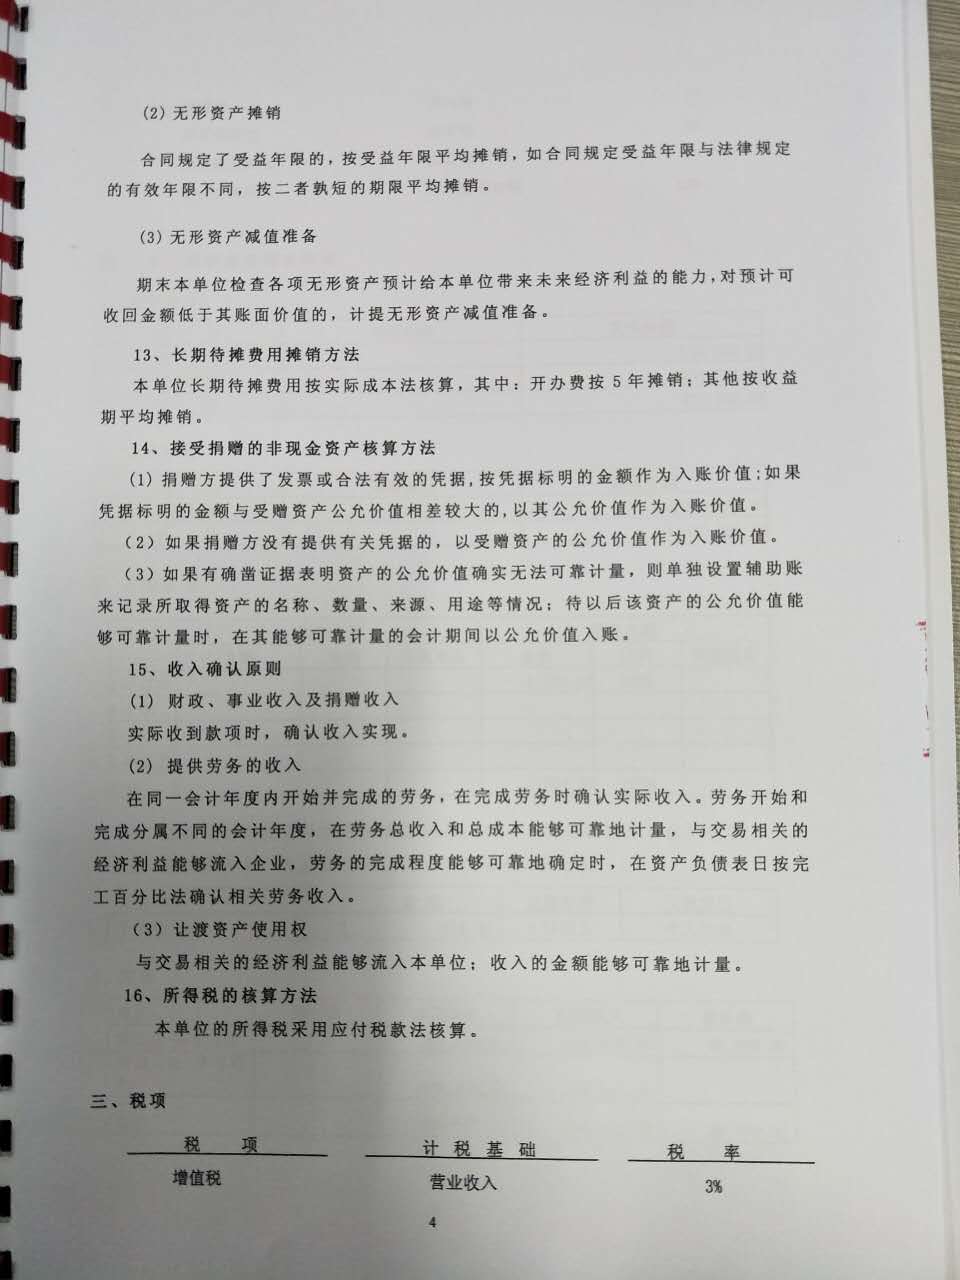 (2) 无形资产摊销
合同规定了受益年限的，按受益年限平均摊销，如合同规定受益年限与法律规定
的有效年限不同，按二者孰短的期限平均摊销。
(3) 无形资产减值准备
期末本单位检查各项无形资产预计给本单位带来未来经济利益的能力，对预计可
收回金额低于其账面价值的，计提无形资产减值准备。
13、长期待摊费用摊销方法
本单位长期待摊费用按实际成本法核算，其中：开办费按 5 年摊销；其他按收益
期平均摊销。
14、接受捐赠的非现金资产核算方法
(1) 捐赠方提供了发票或合法有效的凭据,按凭据标明的金额作为入账价值;如果
凭据标明的金额与受赠资产公允价值相差较大的,以其公允价值作为入账价值。
（2）如果捐赠方没有提供有关凭据的，以受赠资产的公允价值作为入账价值。
（3）如果有确凿证据表明资产的公允价值确实无法可靠计量，则单独设置辅助账
来记录所取得资产的名称、数量、来源、用途等情况；待以后该资产的公允价值能
够可靠计量时，在其能够可靠计量的会计期间以公允价值入账。
15、收入确认原则
(1) 财政、事业收入及捐赠收入
实际收到款项时，确认收入实现。
(2) 提供劳务的收入
在同一会计年度内开始并完成的劳务，在完成劳务时确认实际收入。劳务开始和
完成分属不同的会计年度，在劳务总收入和总成本能够可靠地计量，与交易相关的
经济利益能够流入企业，劳务的完成程度能够可靠地确定时，在资产负债表日按完
工百分比法确认相关劳务收入。
（3）让渡资产使用权
与交易相关的经济利益能够流入本单位；收入的金额能够可靠地计量。
16、所得税的核算方法
本单位的所得税采用应付税款法核算。
三、税项
税 项 计 税 基 础 税 率
增值税 营业收入 3%
4